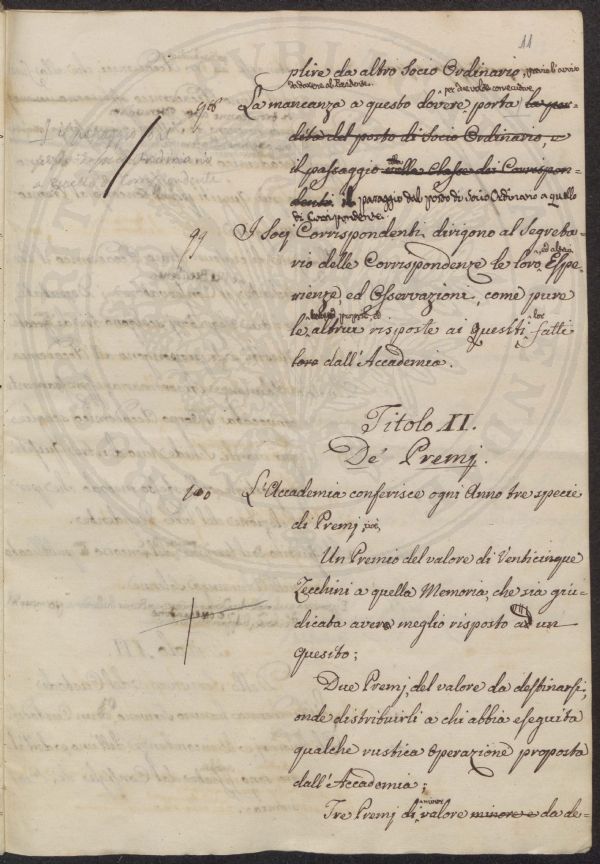 11
plire da altro Socio Ordinario, previo l'avviso
da darsene al Presidente.
per due volte consecutive
98 La mancanza a questo dovere porta la per-
dita del posto di Socio Ordinario, e
il passaggio nella Classe dei Correspon-
denti il passaggio dal posto di Socio Ordinario a quello
di Corrispondente.
99 I Socj Corrispondenti dirigono al Segreta-
rio delle Corrispondenze le loro Espe-
rienze, ed Osservazioni, come pure
le altrui risposte ai Quesiti fatti
loro dall'Accademia.
Titolo XI.
De' Premj.
100 L'Accademia conferisce ogni Anno tre specie
di Premj, cioè,
Un Premio del valore di Venticinque
Zecchini a quella Memoria, che sia giu-
dicata avere meglio risposto ad un
quesito;
Due Premj, del valore da destinarsi,
onde distribuirli a chi abbia eseguita
qualche rustica Operazione proposta
dall'Accademia;
minore
Tre Premj di valore minore e da de-